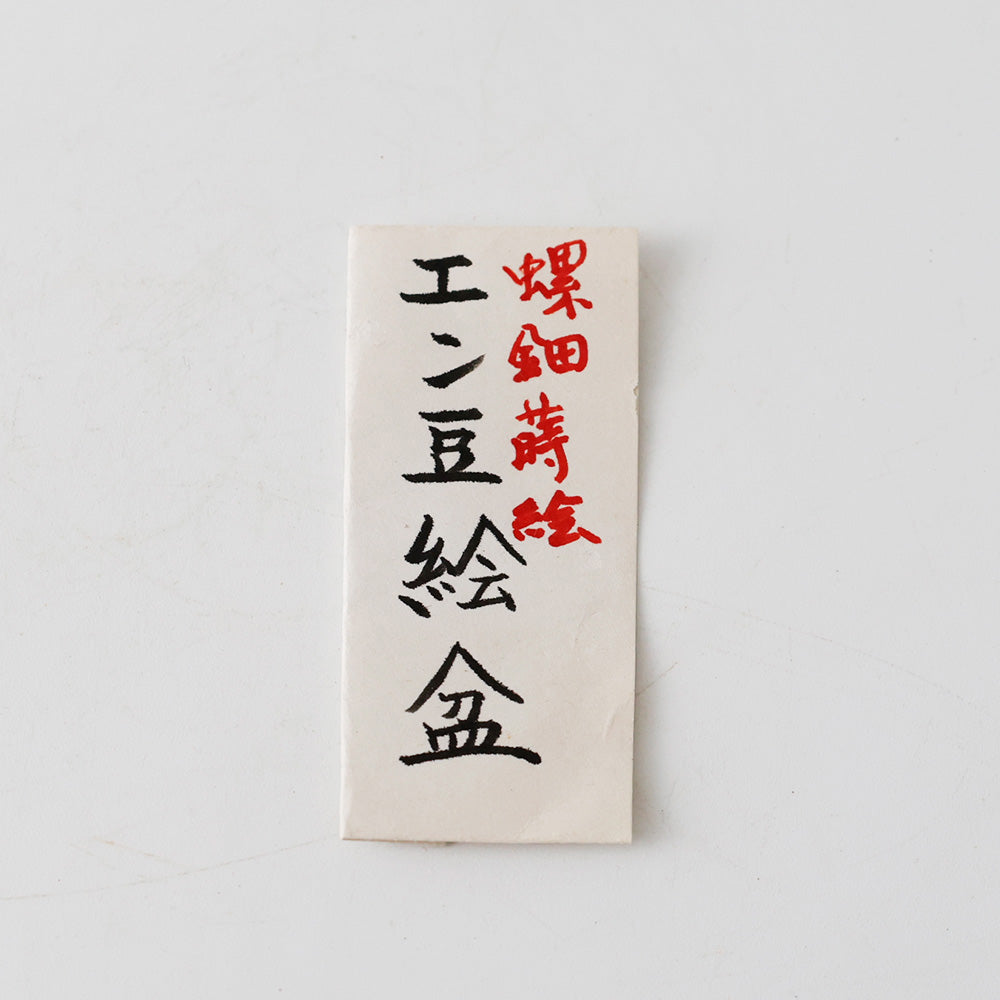 螺鈿蒔絵
エン豆絵盆